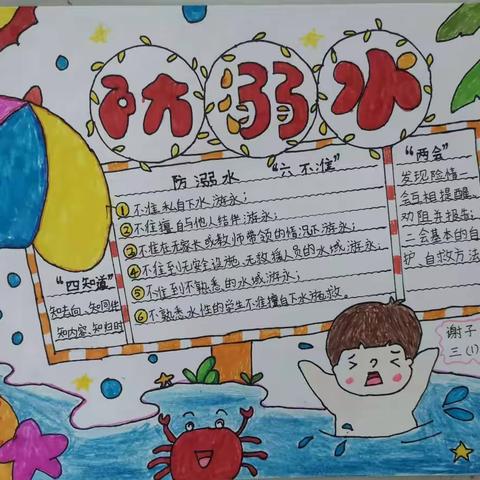 防溺水
防溺水 "六不准"
①不准私自下水游泳;
②不准擅自与他人结伴游泳;
③不准在无家长或教师带领的情况下游泳;
④不准到无安全设施、无救援人员的水域游泳;
⑤不准到不熟悉的水域游泳;
⑥不熟悉水性的学生不准擅自下水施救。
"四知道"
知去向、知同伴
知内容、知归时
"两会"
发现险情一
会互相提醒、
劝阻并报告;
二会基本的自
护、自救方法
谢子
三(1)